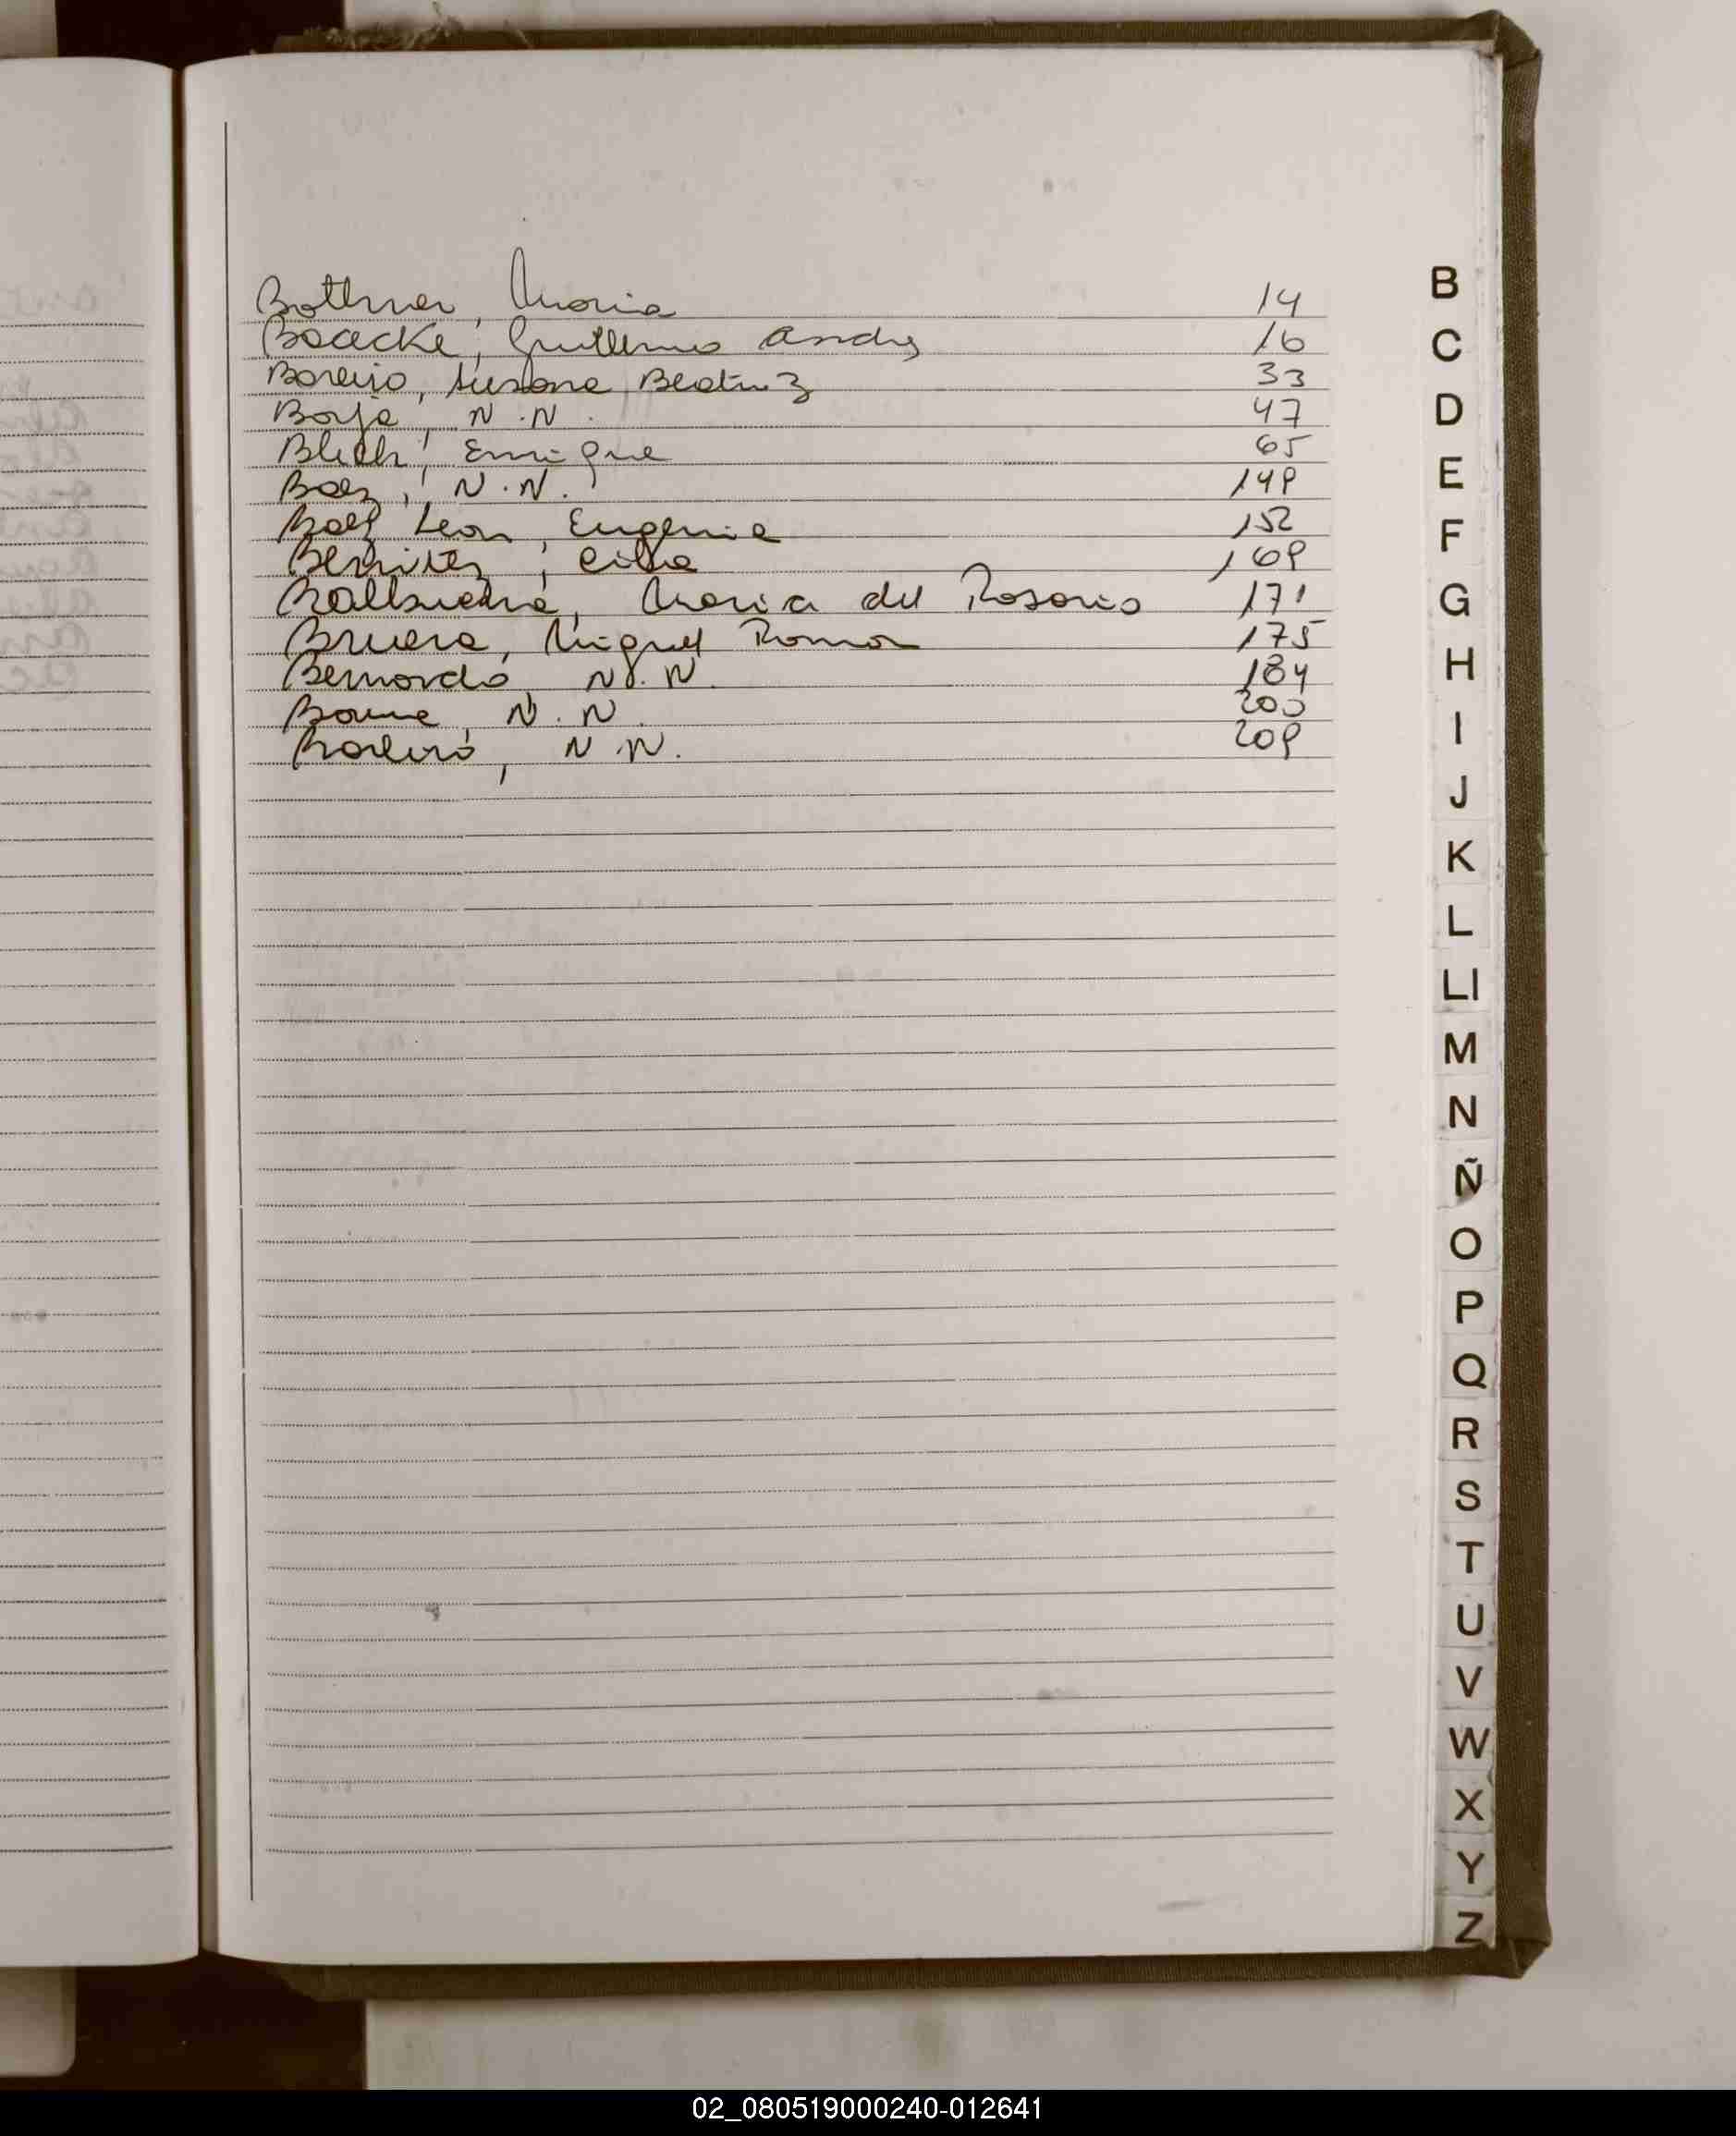 Bottner, Maria 14
Boacke, Guillermo Andres 16
Boreiro, Susana Beatriz 33
Borja, N.N. 47
Blich, Enrique 65
Baez, N.N. 149
Baez Leon, Eugenia 152
Benitez, Cilia 169
Balbuena, Maria del Rosario 171
Bruera, Miguel Roman 175
Bernardo N.N. 184
N.N. 200
N.N. 209
B
C
D
E
F
G
H
I
J
K
L
Ll
M
N
Ñ
O
P
Q
R
S
T
U
V
W
X
Y
Z
02_080519000240-012641